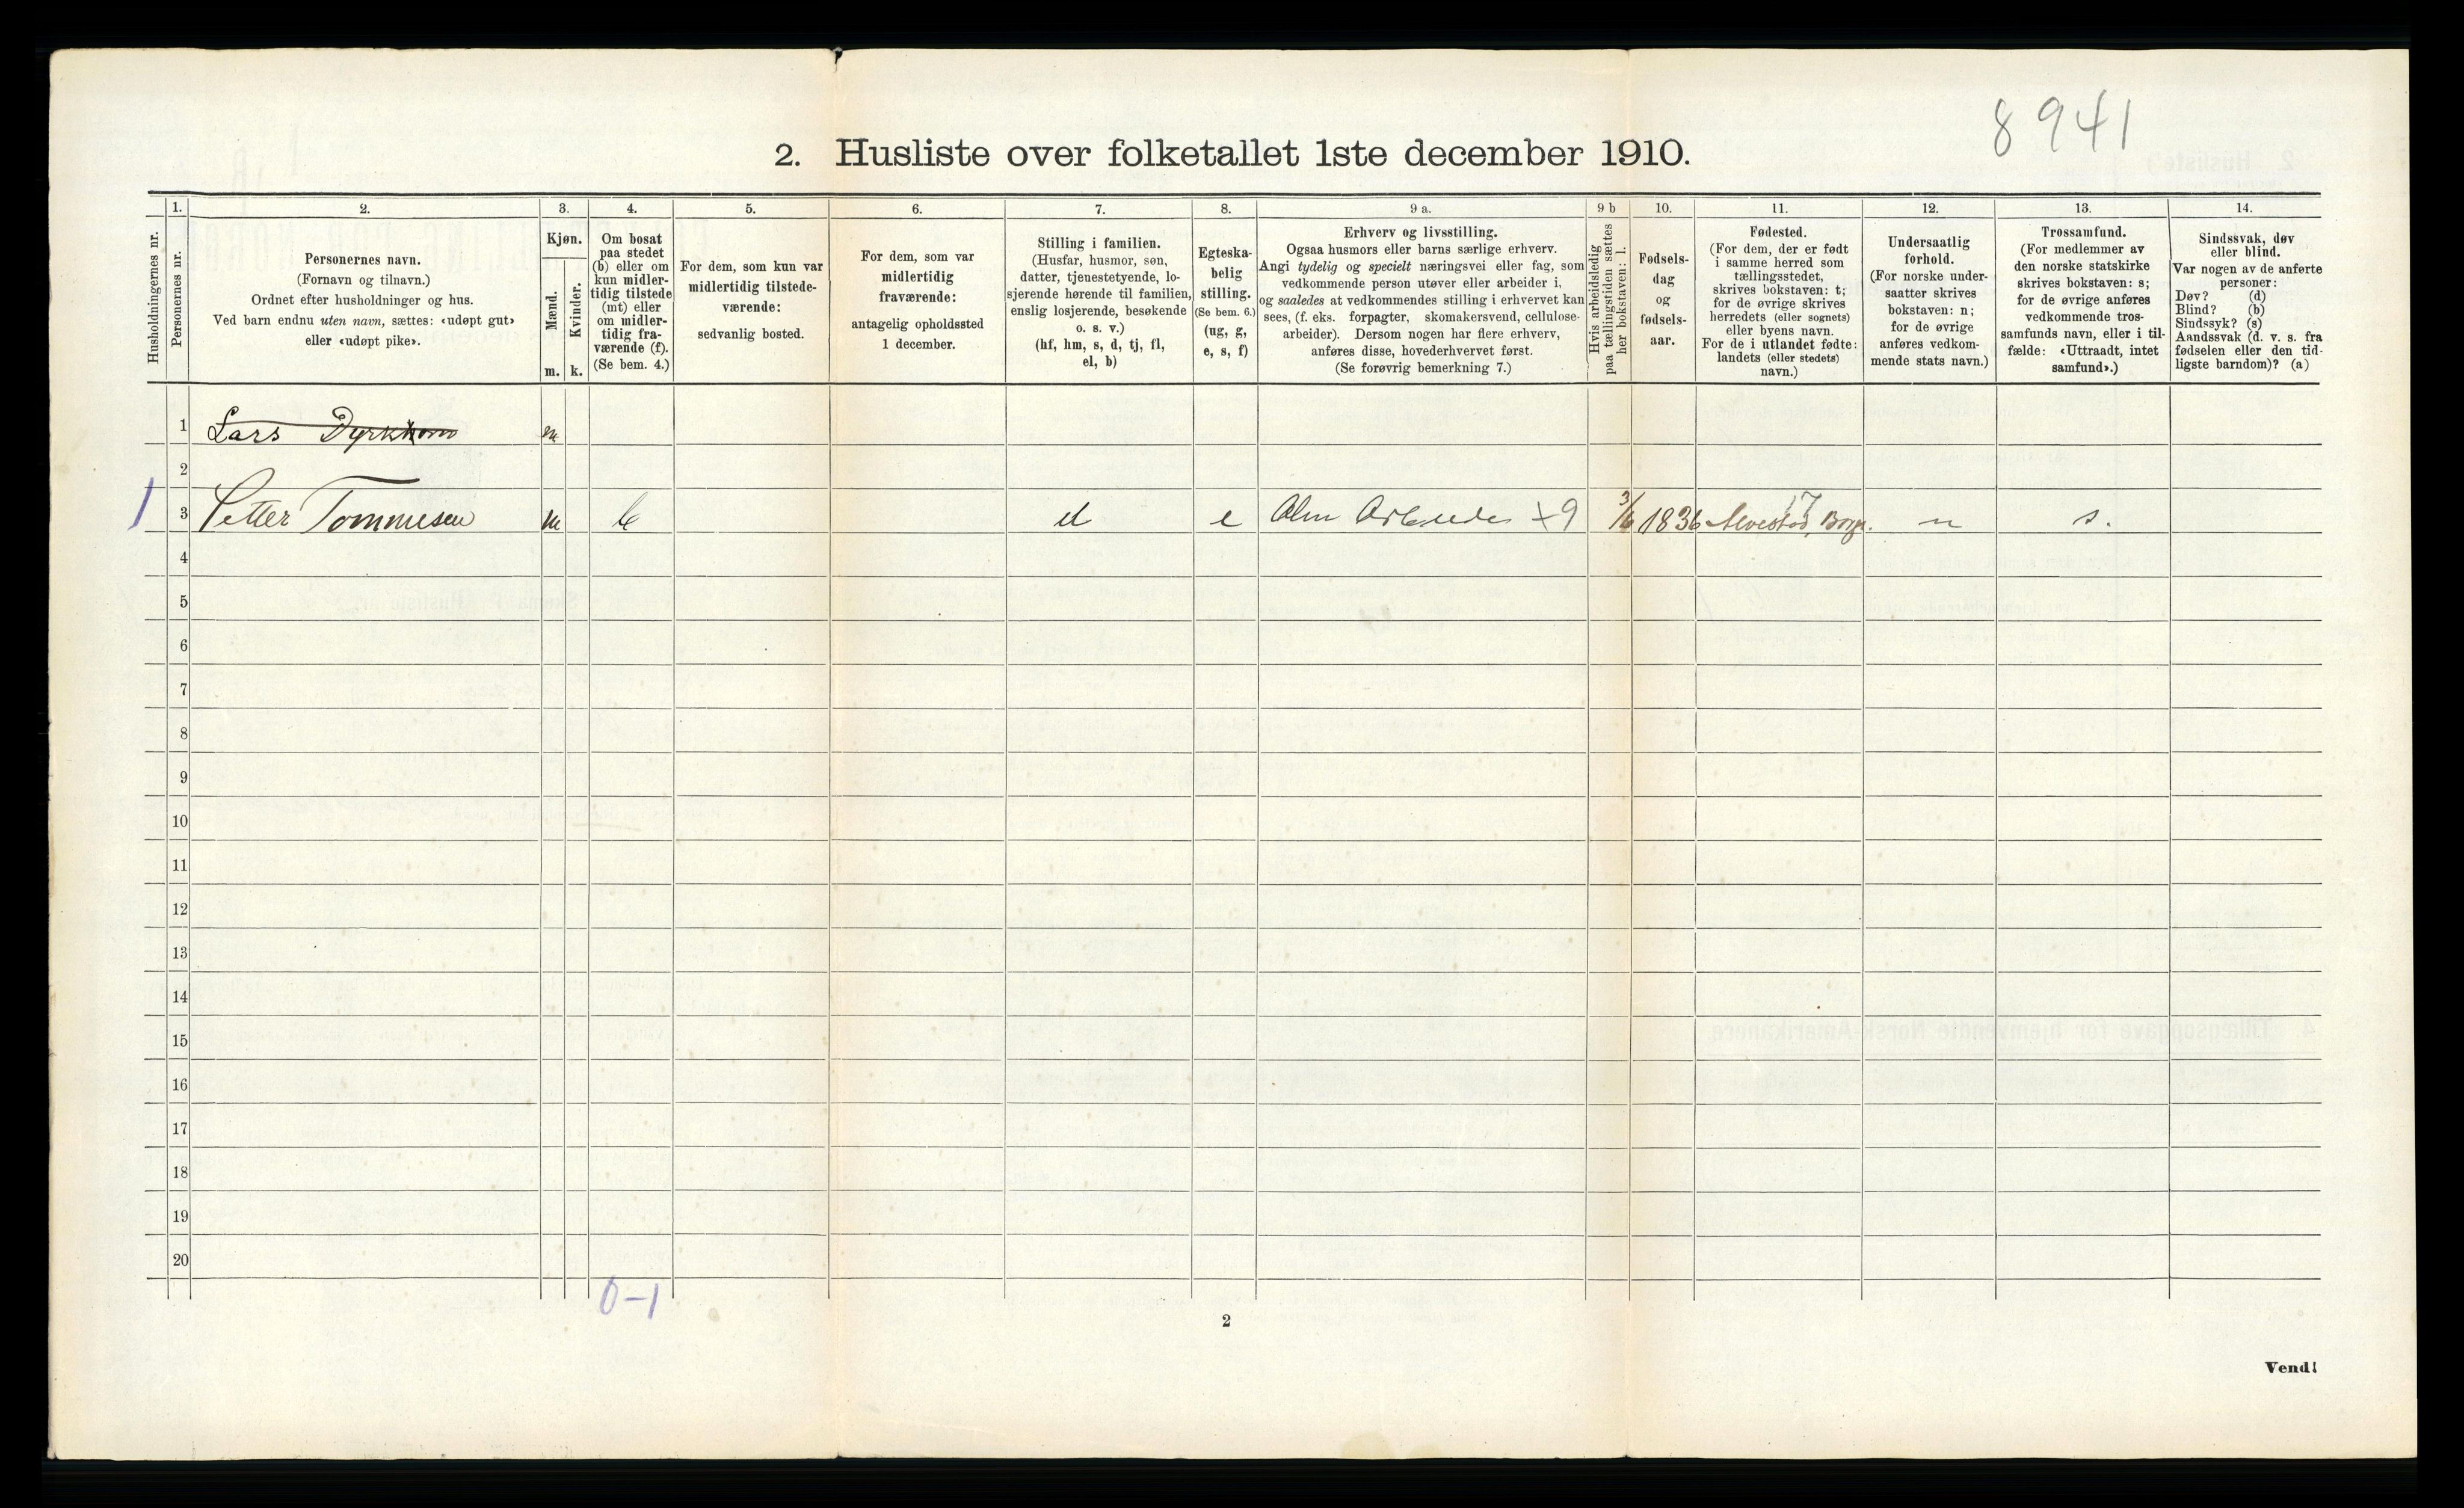 8941
2. Husliste over folketallet 1ste december 1910.
Husholdningernes nr.
1.
Personernes nr.
2.
Personernes navn.
(Fornavn og tilnavn.)
Ordnet efter husholdninger og hus.
Ved barn endnu uten navn, sættes: «udøpt gut»
eller «udøpt pike».
3.
Kjøn.
Mænd.
Kvinder.
m.
k.
4.
Om bosat
paa stedet
(b) eller om
kun midler-
tidig tilstede
(mt) eller
om midler-
tidig fra-
værende (f).
(Se bem. 4.)
5.
For dem, som kun var
midlertidig tilstede-
værende:
sedvanlig bosted.
6.
For dem, som var
midlertidig
fraværende:
antagelig opholdssted
1 december.
7.
Stilling i familien.
(Husfar, husmor, søn,
datter, tjenestetyende, lo-
sjerende hørende til familien,
enslig losjerende, besøkende
o. s. v.)
(hf, hm, s, d, tj, fl,
el, b)
8.
Egteska-
belig
stilling.
(Se bem. 6.)
(ug, g,
e, s, f)
9 a.
Erhverv og livsstilling.
Ogsaa husmors eller barns særlige erhverv.
Angi tydelig og specielt næringsvei eller fag, som
vedkommende person utøver eller arbeider i,
og saaledes at vedkommendes stilling i erhvervet kan
sees, (f. eks. forpagter, skomakersvend, cellulose-
arbeider). Dersom nogen har flere erhverv,
anføres disse, hovederhvervet først.
(Se forøvrig bemerkning 7.)
9 b
Hvis arbeidsledig
paa tællingstiden sættes
her bokstaven: l.
10.
Fødsels-
dag
og
fødsels-
aar.
11.
Fødested.
(For dem, der er født
i samme herred som
tællingsstedet,
skrives bokstaven: t;
for de øvrige skrives
herredets (eller sognets)
eller byens navn.
For de i utlandet fødte:
landets (eller stedets)
navn.)
12.
Undersaatlig
forhold.
(For norske under-
saatter skrives
bokstaven: n;
for de øvrige
anføres vedkom-
mende stats navn.)
13.
Trossamfund.
(For medlemmer av
den norske statskirke
skrives bokstaven: s;
for de øvrige anføres
vedkommende tros-
samfunds navn, eller i til-
fælde: «Uttraadt, intet
samfund».)
14.
Sindssvak, døv
eller blind.
Var nogen av de anførte
personer:
Døv? (d)
Blind? (b)
Sindssyk? (s)
Aandssvak (d. v. s. fra
fødselen eller den tid-
ligste barndom)? (a)
1 Lars m
2
17
1 3 Petter Tommesen m b el e Alm Arbeider +9 3/6 1836 n s.
4
5
6
7
8
9
10
11
12
13
14
15
16
17
18
19
20
0-1
2
Vend!